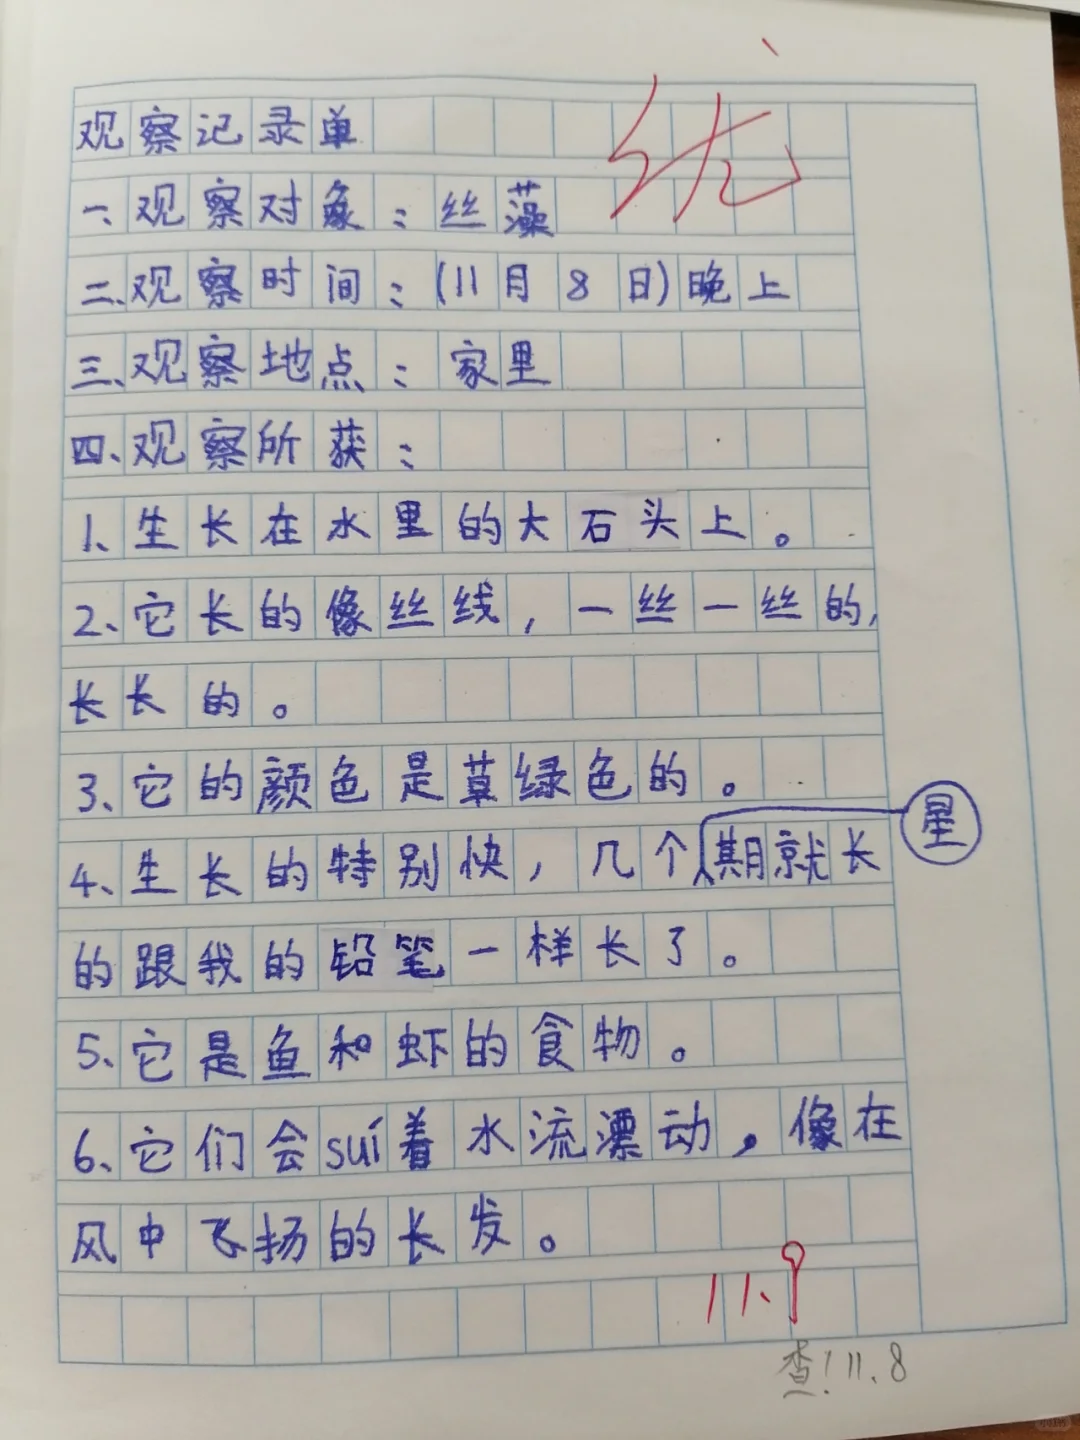 观察记录单
优
一、观察对象：丝藻
二、观察时间：(11月8日)晚上
三、观察地点：家里
四、观察所获：
1、生长在水里的大石头上。
2、它长的像丝线，一丝一丝的，
长长的。
3、它的颜色是草绿色的。
4、生长的特别快，几个星期就长
的跟我的铅笔一样长了。
5、它是鱼和虾的食物。
6、它们会suí着水流漂动，像在
风中飞扬的长发。
11.9
查！11.8